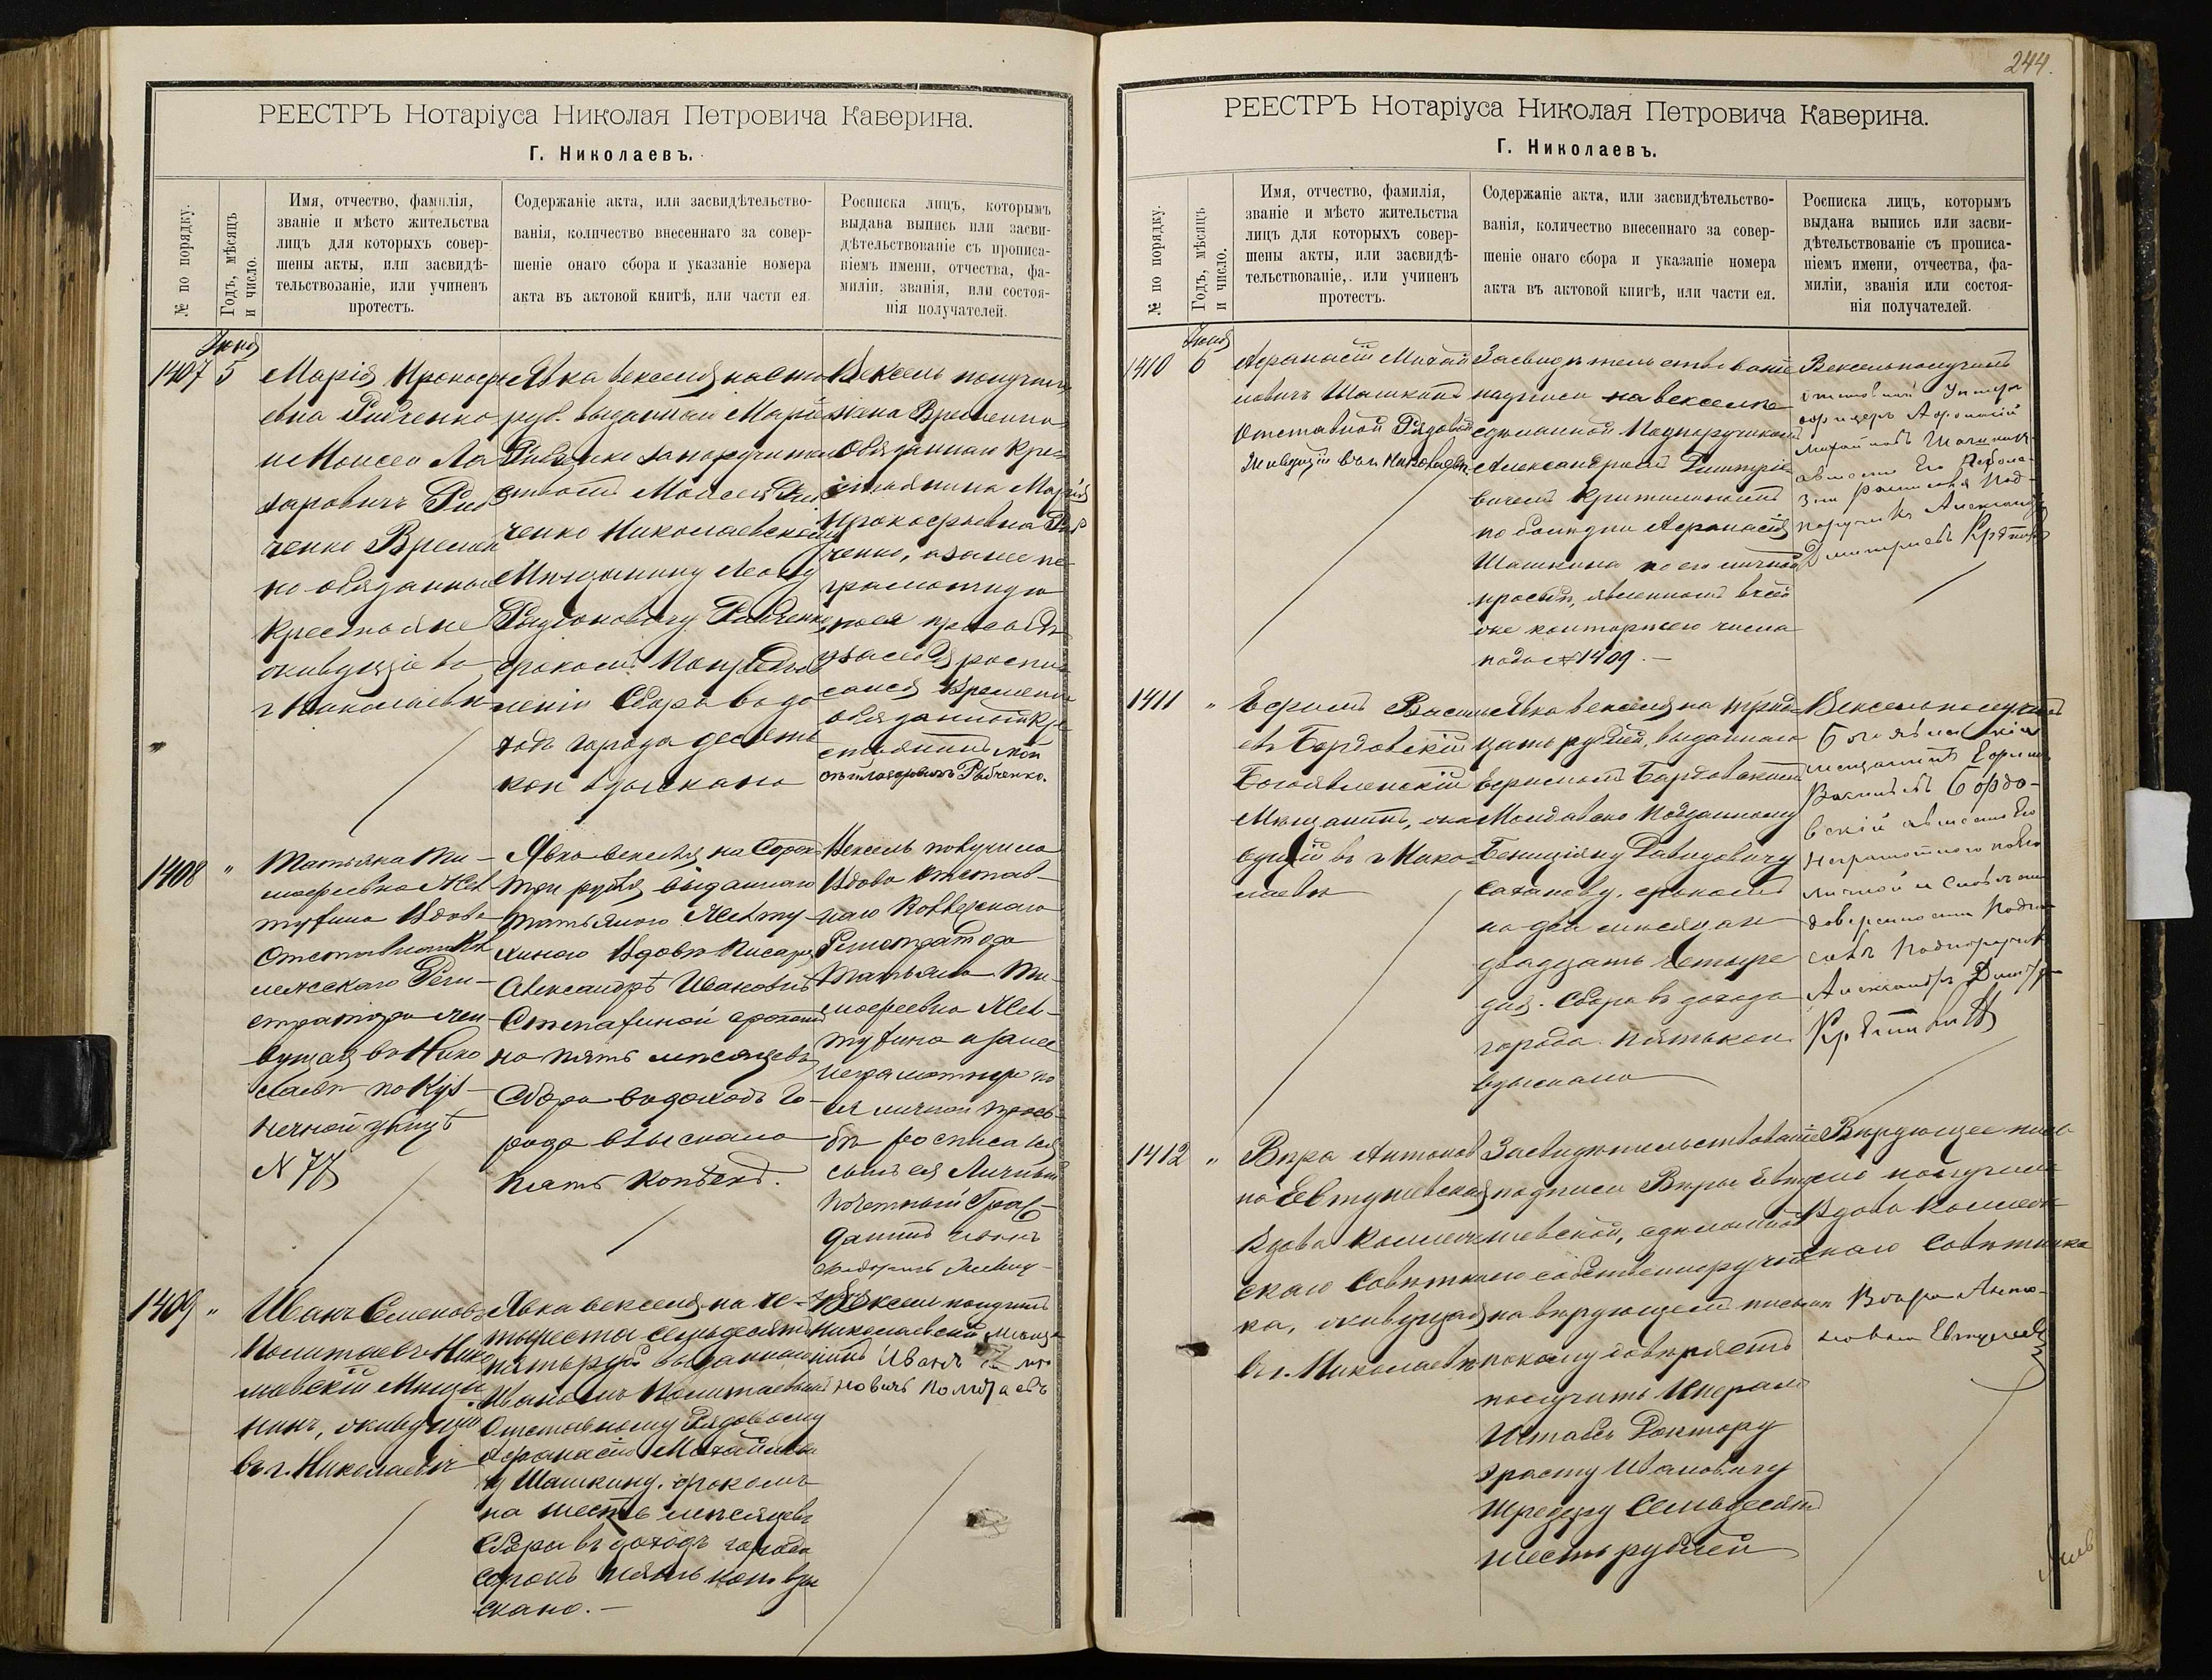 РЕЕСТРЪ Нотаріуса Николая Петровича Каверина.
Г. Николаевъ.
№ по порядку.
Годъ, мѣсяцъ
и число.
Имя, отчество, фамилія,
званіе и мѣсто жительства
лицъ для которыхъ совер-
шены акты, или засвидѣ-
тельствованіе, или учиненъ
протестъ.
Содержаніе акта, или засвидѣтельство-
ванія, количество внесеннаго за совер-
шеніе онаго сбора и указаніе номера
акта въ актовой книгѣ, или части ея.
Росписка лицъ, которымъ
выдана выпись или засви-
дѣтельствованіе съ прописа-
ніемъ имени, отчества, фа-
миліи, званія, или состоя-
нія получателей.
Іюня
1407 5
Марія Прокофь
евна Рибченко
и Моисей Ла
заровичъ Риб
ченко Времен
но обязанные
Крестьяне
живущіе въ
г Николаевѣ
Явка векселя на сто
руб. выданнаго Маріи
Рибченко за поручитель
ствомъ Моисея Риб
ченко Николаевскому
Мѣщанину Леону
Радіоновичу Рабченко
срокомъ по предъяв
ленію Сбора въ до
ходъ города десять
коп взыскано
Вексель получила
жена Временно
Обязаннаго Кре
стьянина Марія
Прокофьевна Риб
ченко, а за нее не
грамотную
по ея просьбѣ
росписался Временно
обязанный Кре
стьянинъ
Рыбченко.
1408 "
Татьяна Ти-
мофеевна
Вдова
Отставнаго Кол
лежскаго Реги-
стратора жи
вущая въ Нико
лаевѣ по Куз-
нечной улицѣ
N 77
Явка векселя на Сорок
три рубля, выданнаго
Татьяною
Вдовѣ Писаря
Александрѣ Ивановнѣ
Степахиной срокомъ
на пять мѣсяцевъ
Сбора въ доходъ Го-
рода взыскано
пять копѣекъ.
Вексель получила
Вдова отстав-
наго Коллежскаго
Регистратора
Татьяна Ти-
мофеевна
а за нее
неграмотную по
ея личной прось-
бѣ росписался
сынъ ея Личный
почетный Граж
данинъ
1409 "
Иванъ Семенов
Полтаевъ Нико
лаевскій Мѣща
нинъ, живущій
въ г. Николаевѣ
Явка векселя на че-
тыреста семьдесятъ
пять руб выданнаго
Иваномъ Полтаевымъ
Отставному Рядовому
Афанасію Михайлови
чу Шашкину. срокомъ
на шесть мѣсяцевъ
Сбора въ доходъ города
сорокъ пять коп взы
скано.—
Вексель получилъ
Николаевскій мѣща
нинъ Иванъ Семе
новичъ Полтаевъ
244.
РЕЕСТРЪ Нотаріуса Николая Петровича Каверина.
Г. Николаевъ.
№ по порядку.
Годъ, мѣсяцъ
и число.
Имя, отчество, фамилія,
званіе и мѣсто жительства
лицъ для которыхъ совер-
шены акты, или засвидѣ-
тельствованіе, или учиненъ
протестъ.
Содержаніе акта, или засвидѣтельство-
ванія, количество внесеннаго за совер-
шеніе онаго сбора и указаніе номера
акта въ актовой книгѣ, или части ея.
Росписка лицъ, которымъ
выдана выпись или засви-
дѣтельствованіе съ прописа-
ніемъ имени, отчества, фа-
миліи, званія или состоя-
нія получателей.
Іюня
1410 6
Афанасій Михай
ловичъ Шашкинъ
Отставной Рядовой
Живущій въ г. Николаевѣ
Засвидѣтельствованіе
надписи на векселѣ
сдѣланной Подпоручикомъ
Александромъ Дмитріе
вичемъ
по безъ Афанасія
Шашкина по его личной
просьбѣ, явленномъ въ сей
же конторѣ сего числа
подъ № 1409.—
Вексель получилъ
отставной Унтеръ
офицеръ Афанасій
Михайловъ Шашкинъ
а вмѣсто его
росписался Под-
поручикъ Александръ
Дмитріевъ
1411 "
Ефимъ Василь
евъ Бордовскій
Богоявленскій
Мѣщанинъ, жи
вущій въ г Нико
лаевѣ
Явка векселя на трид
цать рублей, выданнаго
Ефимомъ Бордовскимъ
Молдавско Подданному
Давидовичу
срокомъ
на два мѣсяца и
двадцать четыре
дня. Сбора въ доходъ
города пять коп
взыскано
Вексель получилъ
Богоявленскій
мѣщанинъ Ефимъ
Васильевъ Бордо-
вскій а вмѣсто его
неграмотнаго по его
личной и словесной
довѣренности подпи
салъ Подпоручикъ
Александръ Дмитр
1412 "
Вѣра Антонов
на Евтушевская
Вдова Коллеж
скаго Совѣтни
ка, живущая
въ г. Николаевѣ
Засвидѣтельствованіе
подписи Вѣры Евту
шевской, сдѣланной
ею собственноручно
на вѣрующемъ письмѣ
по кому довѣряетъ
получить
Штабсъ Доктору
Эрасту Ивановичу
Шредеру Семьдесятъ
шесть рублей
Вѣрующее пись
мо получила
Вдова Коллеж
скаго Совѣтника
Вѣра Анто-
новна Евтушевск